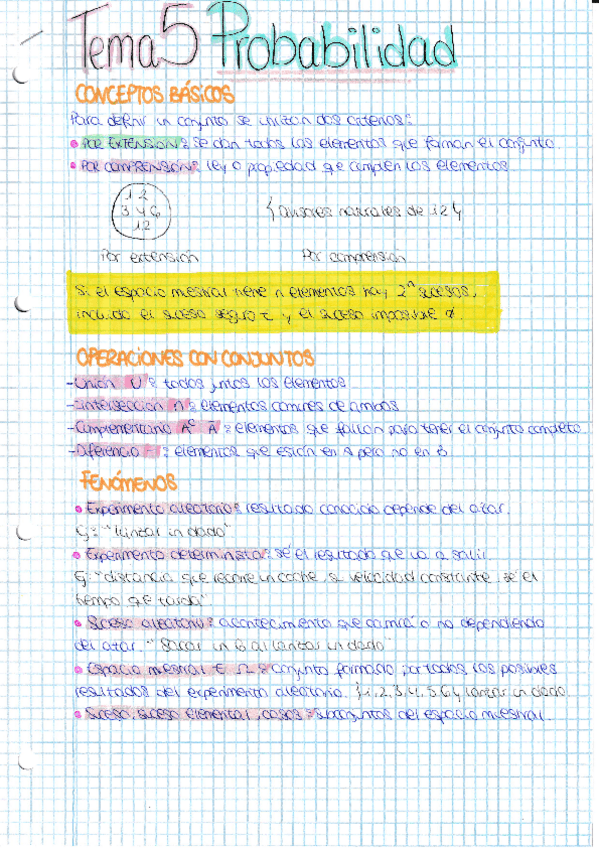 Tema 5 Probabilidad
CONCEPTOS BÁSICOS
Para definir un conjunto se utilizan dos criterios:
• POR EXTENSIÓN: se dan todos los elementos que forman el conjunto.
• POR COMPRENSIÓN: ley o propiedad que cumplen los elementos
1 2
3 4 6
12
{divisores naturales de 12}
Por extensión Por comprensión
Si el espacio muestral tiene n elementos hay 2ⁿ sucesos,
incluido el suceso seguro E y el suceso imposible ø.
OPERACIONES CON CONJUNTOS
- Unión U: todos juntos los elementos
- Intersección ∩: elementos comunes de ambos
- Complementario Aᶜ Ā: elementos que faltan para tener el conjunto completo
- Diferencia -: elementos que están en A pero no en B
FENÓMENOS
• Experimento aleatorio: resultado conocido depende del azar.
Ej: "lanzar un dado"
• Experimento determinista: sé el resultado que va a salir.
Ej: "distancia que recorre un coche, si velocidad constante, sé el
tiempo que tarda"
• Suceso aleatorio: acontecimiento que ocurrirá o no dependiendo
del azar. "Sacar un 6 al lanzar un dado"
• Espacio muestral E Ω: conjunto formado por todos los posibles
resultados del experimento aleatorio. {1,2,3,4,5,6} lanzar un dado
• Suceso, suceso elemental, casos: subconjuntos del espacio muestral.